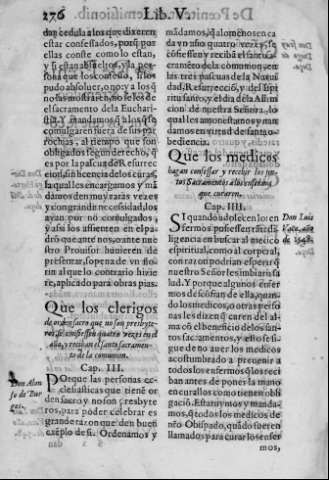 276 Lib. V.
den cedula a los que dixeren
estar confessados, porq̃ por
ellas conste como lo estan,
y si estan absueltos, y la per
sona que los confessò, si los
pudo absoluer, o no: y a los q̃
no las mostraren, no les den
el sacramento de la Euchari-
stia. Y mandamos q̃ a los q̃ se
comulgaren fuera de sus par
rochias, al tiempo que son
obligados segun derecho, q̃
es por la pascua de Resurrec
cion, sin licencia de los curas,
la qual les encargamos y mã
damos den muy raras vezes
y con grande necessidad los
ayan por no comulgados, y
assi los assienten en el pa-
drõ que ante nos, o ante nue
stro Prouisor huuieren de
presentar, so pena de vn flo-
rin al que lo contrario hizie
re, aplicado para obras pias.
Que los clerigos
de orden sacro que no son presbyte-
ros, se confiessen quatro vezes en el
año, y reciban el santo sacramen-
to de la comunion.
Cap. III.
Don Alon
so de Bur
gos.
Porque las personas ec-
clesiasticas que tienẽ or
den sacro y no son presbyte
ros, para poder celebrar es
grande razon que den buen
exẽplo de si. Ordenamos y
mãdamos, q̃ a lo menos en ca
da vn año quatro vezes, se
confiessen y reciban el santo
sacramẽto de la comunion, en
las tres pascuas de la Natiui
dad, Resurrecciõ, y del Spi
ritu santo, y el dia de la Assum
cion de nuestra Señora, lo
qual les amonestamos y man
damos en virtud de santa o-
bediencia.
Que los medicos
hagan confessar y recebir los san-
tos Sacramentos a los enfermos
que curaren.
Cap. IIII.
Don Luis
Vaca, año
de 1548.
Si quando adolecen los en
fermos pusiessen tãta di-
ligencia en buscar al medico
espiritual, como al corporal,
con razon podrian esperar q̃
nuestro Señor les imbiaria sa
lud. Y porque algunos enfer
mos desconfian de ella, quan-
do los medicos, o otras perso
nas les dizen q̃ curen del al-
ma cõ el beneficio de los san-
tos sacramentos, y ello se si-
gue de no auer los medicos
acostumbrado a preuenir a
todos los enfermos q̃ los reci
ban antes de poner la mano
en curallos como tienen obli
gaciõ. Estatuymos y manda-
mos, q̃ todos los medicos de
nr̃o Obispado, quãdo fueren
llamados para curar los enfer
mos,